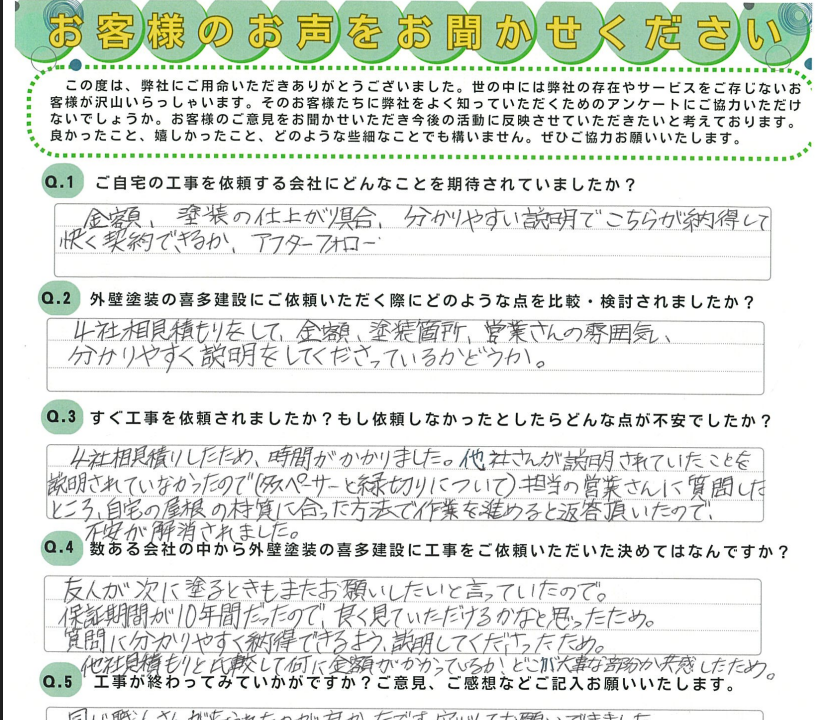 お客様のお声をお聞かせください
この度は、弊社にご用命いただきありがとうございました。世の中には弊社の存在やサービスをご存じないお
客様が沢山いらっしゃいます。そのお客様たちに弊社をよく知っていただくためのアンケートにご協力いただけ
ないでしょうか。お客様のご意見をお聞かせいただき今後の活動に反映させていただきたいと考えております。
良かったこと、嬉しかったこと、どのような些細なことでも構いません。ぜひご協力お願いいたします。
Q.1 ご自宅の工事を依頼する会社にどんなことを期待されていましたか？
金額、塗装の仕上がり具合、分かりやすい説明でこちらが納得して
快く契約できるか、アフターフォロー
Q.2 外壁塗装の喜多建設にご依頼いただく際にどのような点を比較・検討されましたか？
4社相見積もりをして、金額、塗装箇所、営業さんの雰囲気、
分かりやすく説明をしてくださっているかどうか。
Q.3 すぐ工事を依頼されましたか？もし依頼しなかったとしたらどんな点が不安でしたか？
4社相見積りしたため、時間がかかりました。他社さんが説明されていたことを
説明されていなかったので(タスペーサーと縁切りについて)担当の営業さんに質問した
ところ、自宅の屋根の材質に合った方法で作業を進めると返答頂いたので、
不安が解消されました。
Q.4 数ある会社の中から外壁塗装の喜多建設に工事をご依頼いただいた決めてはなんですか？
友人が次に塗るときもまたお願いしたいと言っていたので。
保証期間が10年間だったので、長く見ていただけるかなと思ったため。
質問に分かりやすく納得できるよう、説明してくださったため。
他社見積もりと比較して何に金額がかかっているか、どこが大事な部分か共感したため。
Q.5 工事が終わってみていかがですか？ご意見、ご感想などご記入お願いいたします。